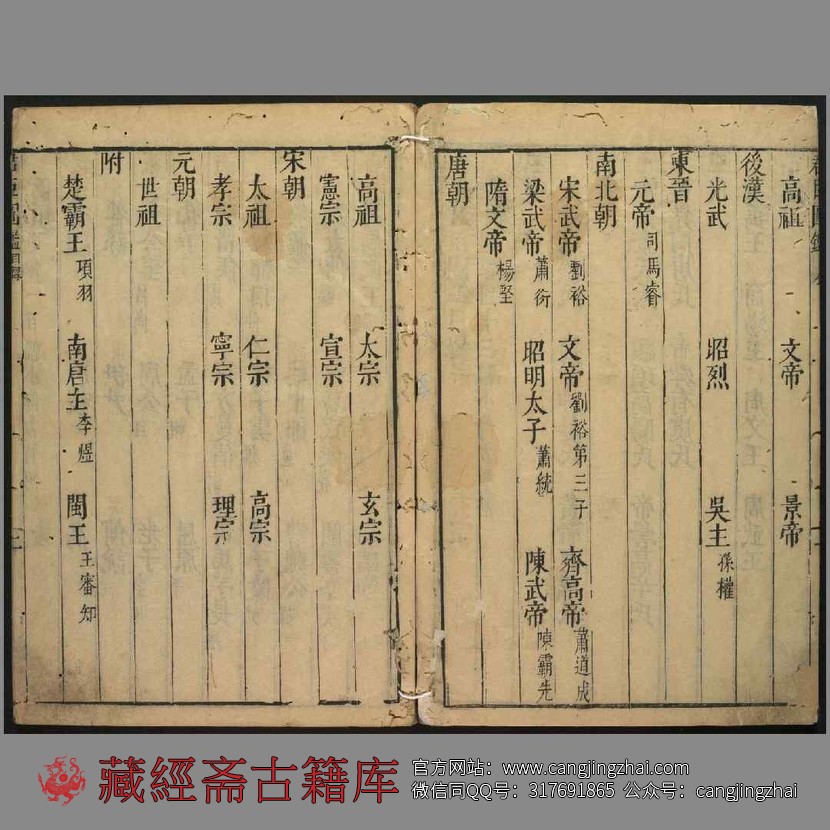 高祖 文帝 景帝
後漢
光武 昭烈 吳主孫權
東晉
元帝司馬睿
南北朝
宋武帝劉裕 文帝劉裕第三子 齊高帝蕭道成
梁武帝蕭衍 昭明太子蕭統 陳武帝陳霸先
隋文帝楊堅
唐朝
高祖 太宗 玄宗
憲宗 宣宗
宋朝
太祖 仁宗 高宗
孝宗 寧宗 理宗
元朝
世祖
附
楚霸王項羽 南唐主李煜 閩王王審知
藏經斋古籍库
官方网站：www.cangjingzhai.com
微信同QQ号：317691865 公众号：cangjingzhai